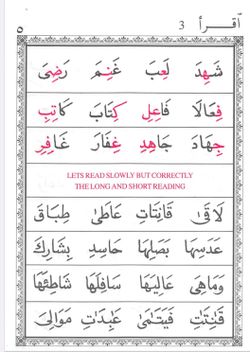 ٥ أَقْرَأْ 3
شَهِدَ لَعِبَ غَنِمَ رَضِيَ
فِعَالًا فَاعِلٍ كِتَابَ كَاتِبِ
جِهَادَ جَاهِدِ غِفَارَ غَافِرِ
LETS READ SLOWLY BUT CORRECTLY
THE LONG AND SHORT READING
لَاقَ قَانِتَاتِ عَاطَى طِبَاقَ
عَدَسِهَا بَصَلِهَا حَاسِدِ بِشَارِكَ
وَمَاهِيَ عَالِيَهَا سَافِلَهَا شَاطِئِهَا
قَنِتَتِ فَيَتَمَى عَبِدَتِ مَوَالِيَ